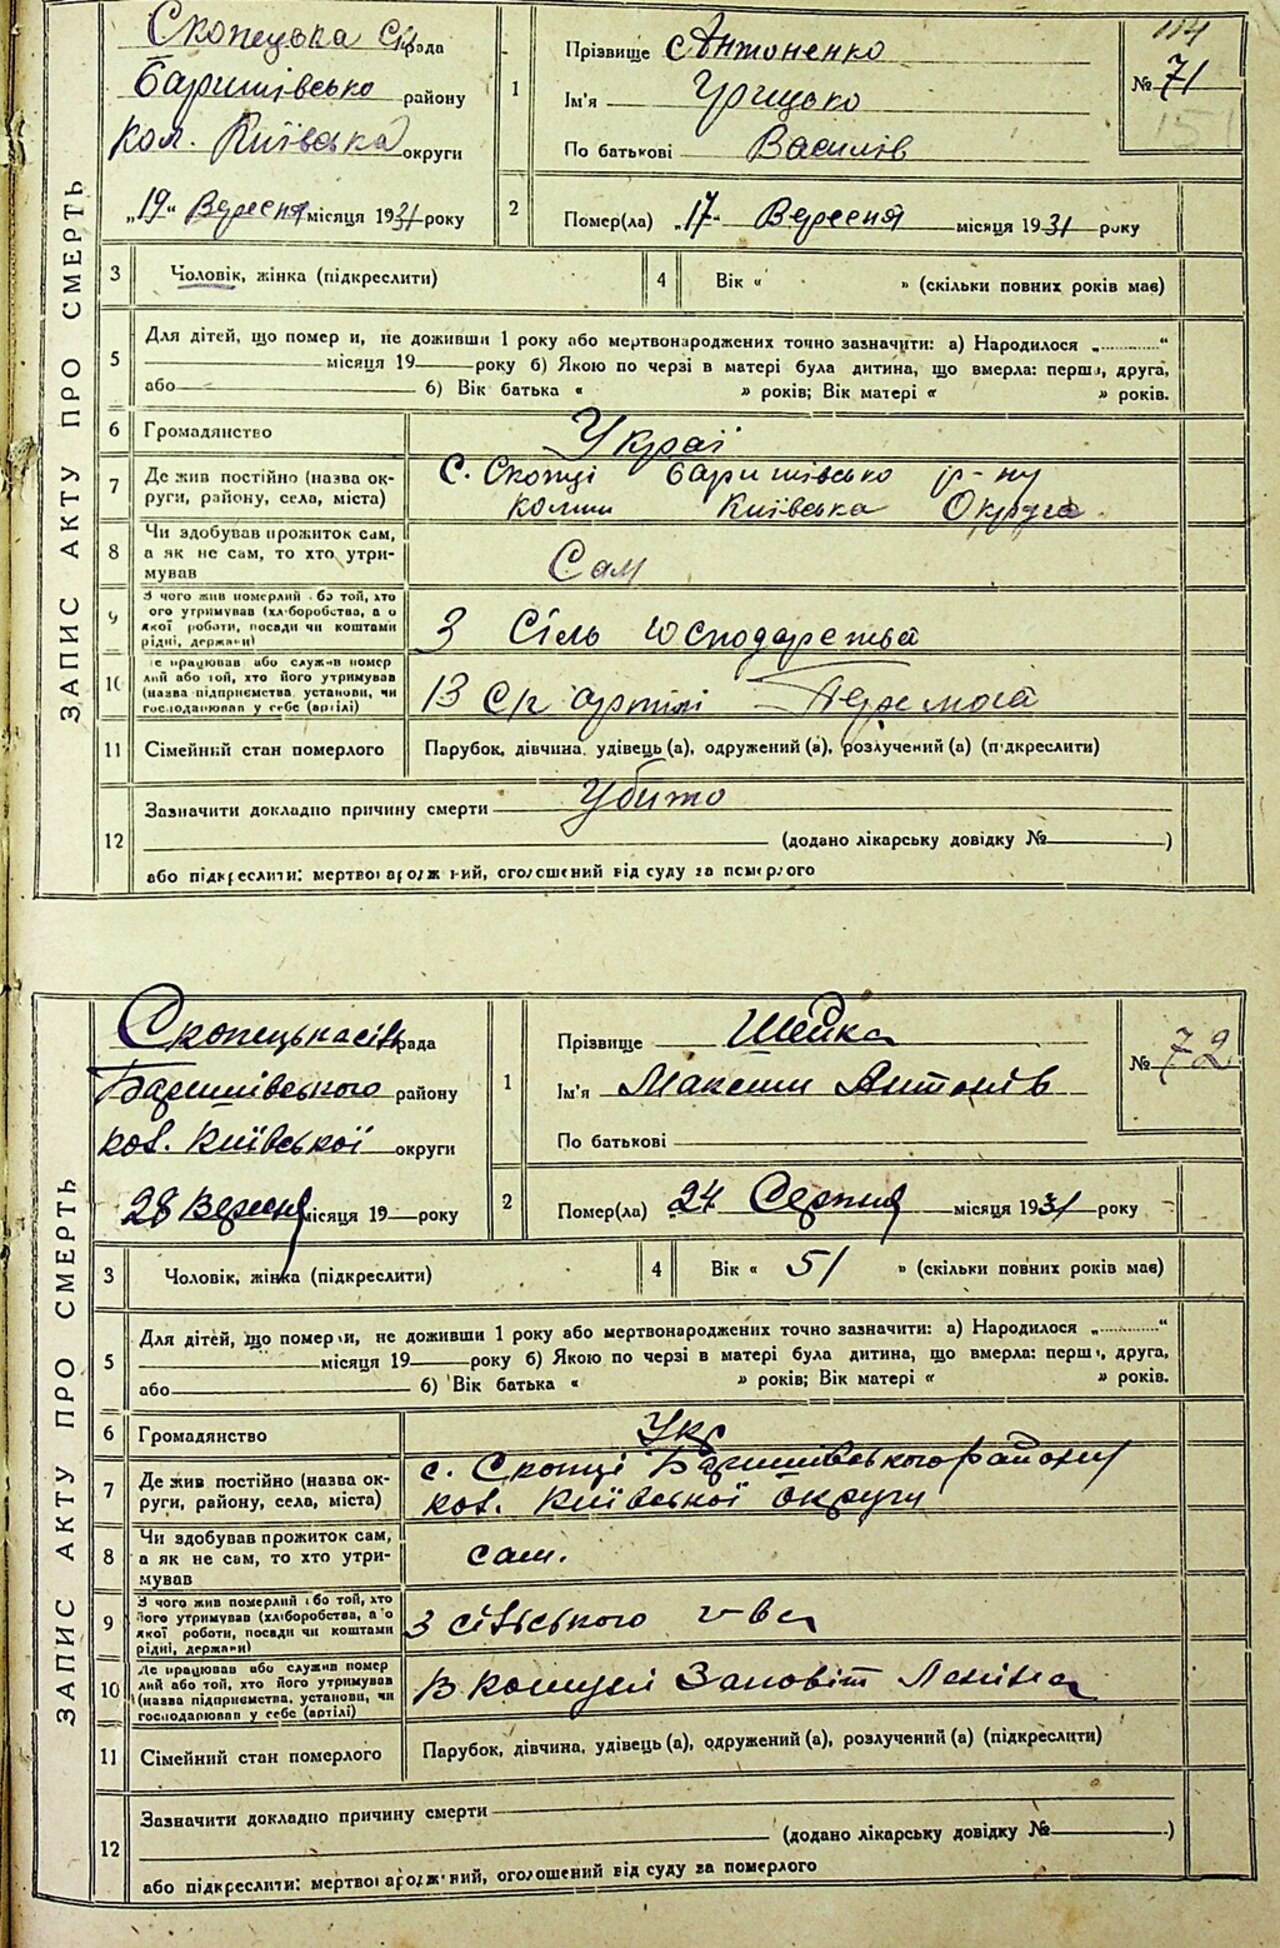 ЗАПИС АКТУ ПРО СМЕРТЬ
Скопецька сіл рада
Баришівсько району
кол. Київська округи
„19“ Вересня місяця 1931 року
1
Прізвище Антоненко
Ім'я Грицько
По батькові Василів
114
№ 71
151
2
Помер(ла) „17“ Вересня місяця 1931 року
3
Чоловік, жінка (підкреслити)
4
Вік « » (скільки повних років має)
5
Для дітей, що помер и, не доживши 1 року або мертвонароджених точно зазначити: а) Народилося „ “
місяця 19 року б) Якою по черзі в матері була дитина, що вмерла: перша, друга,
або 6) Вік батька « » років; Вік матері « » років.
6 Громадянство Украї
7 Де жив постійно (назва ок-
руги, району, села, міста)
с. Скопці Баришівсько р-ну
Київська Округа
8 Чи здобував прожиток сам,
а як не сам, то хто утри-
мував
Сам
9 З чого жив померлий або той, хто
його утримував (хліборобства, а о
якої роботи, посади чи коштами
рідні, держави)
З Сіль Господарства
10 Де працював або служив помер
лий або той, хто його утримував
(назва підприємства, установи, чи
господарював у себе (артілі)
В С/г артілі Перемога
11 Сімейний стан померлого Парубок, дівчина, удівець (а), одружений (а), розлучений (а) (підкреслити)
12
Зазначити докладно причину смерти Убито
(додано лікарську довідку № )
або підкреслити: мертвонароджений, оголошений від суду за померлого
ЗАПИС АКТУ ПРО СМЕРТЬ
Скопецька сіль рада
Баришівського району
кол. Київської округи
28 Вересня місяця 19 року
1
Прізвище Шейка
Ім'я Максим Антонів
По батькові
№ 72
2
Помер(ла) „24 Серпня місяця 1931 року
3
Чоловік, жінка (підкреслити)
4
Вік « 51 » (скільки повних років має)
5
Для дітей, що помер и, не доживши 1 року або мертвонароджених точно зазначити: а) Народилося „ “
місяця 19 року б) Якою по черзі в матері була дитина, що вмерла: перша, друга,
або 6) Вік батька « » років; Вік матері « » років.
6 Громадянство Укр
7 Де жив постійно (назва ок-
руги, району, села, міста)
с. Скопці Баришівського району
кол. Київської округи
8 Чи здобував прожиток сам,
а як не сам, то хто утри-
мував
сам.
9 З чого жив померлий або той, хто
його утримував (хліборобства, а о
якої роботи, посади чи коштами
рідні, держави)
З сільського г-ва
10 Де працював або служив помер
лий або той, хто його утримував
(назва підприємства, установи, чи
господарював у себе (артілі)
В комуні Заповіт Леніна
11 Сімейний стан померлого Парубок, дівчина, удівець (а), одружений (а), розлучений (а) (підкреслити)
12
Зазначити докладно причину смерти
(додано лікарську довідку № )
або підкреслити: мертвонароджений, оголошений від суду за померлого